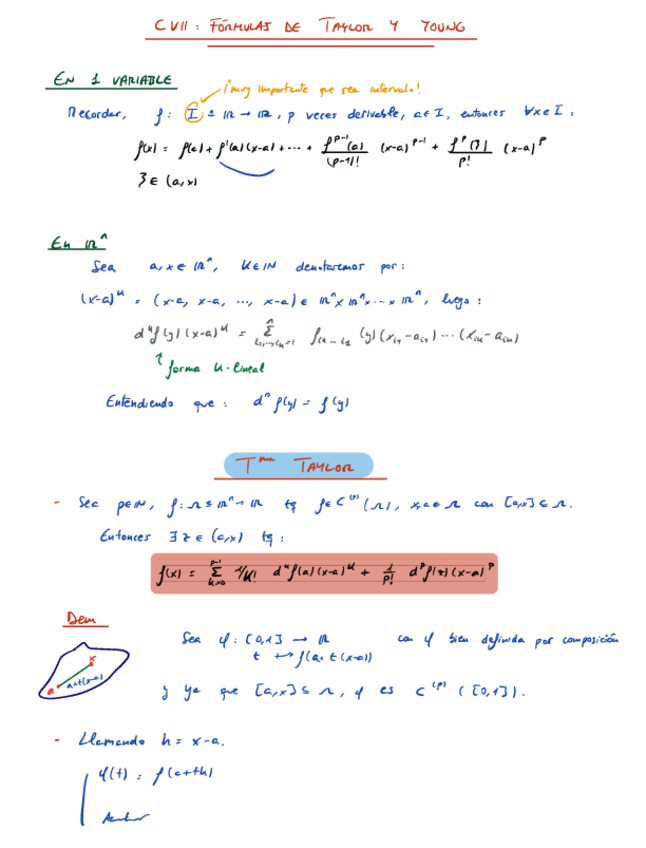 CVII: FÓRMULAS DE TAYLOR Y YOUNG
EN 1 VARIABLE
¡muy importante que sea intervalo!
Recordar, f: I ⊆ ℝ → ℝ, p veces derivable, a ∈ I, entonces ∀x ∈ I:
f(x) = f(a) + f'(a)(x-a) + ... + f^{p-1}(a)/(p-1)! (x-a)^{p-1} + f^p(ξ)/p! (x-a)^p
ξ ∈ (a,x)
En ℝ^n
Sea a, x ∈ ℝ^n, k ∈ ℕ denotaremos por:
(x-a)^k = (x-a, x-a, ..., x-a) ∈ ℝ^n × ℝ^n × ... × ℝ^n, luego:
d^k f(y)(x-a)^k = Σ_{i_1,...,i_k=1}^n f_{i_1...i_k}(y)(x_{i_1}-a_{i_1})...(x_{i_k}-a_{i_k})
↑ forma k-lineal
Entendiendo que: d^0 f(y) = f(y)
Tma TAYLOR
- Sea p∈ℕ, f: Ω ⊆ ℝ^n → ℝ tq f ∈ C^{(p)}(Ω), x, a ∈ Ω con [a,x] ⊆ Ω.
Entonces ∃ z ∈ (a,x) tq:
f(x) = Σ_{k=0}^{p-1} 1/k! d^k f(a)(x-a)^k + 1/p! d^p f(z)(x-a)^p
Dem
Sea φ: [0,1] → ℝ con φ bien definida por composición
t ↦ f(a+t(x-a))
a x a+t(x-a)
y ya que [a,x] ⊆ Ω, φ es C^{(p)}([0,1]).
- Llamando h = x-a.
φ(t) = f(a+th)